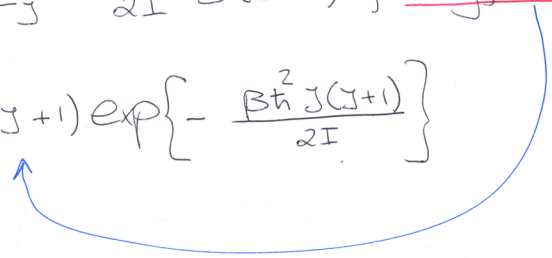 2I
J+1) exp{- βħ² J(J+1) / 2I}